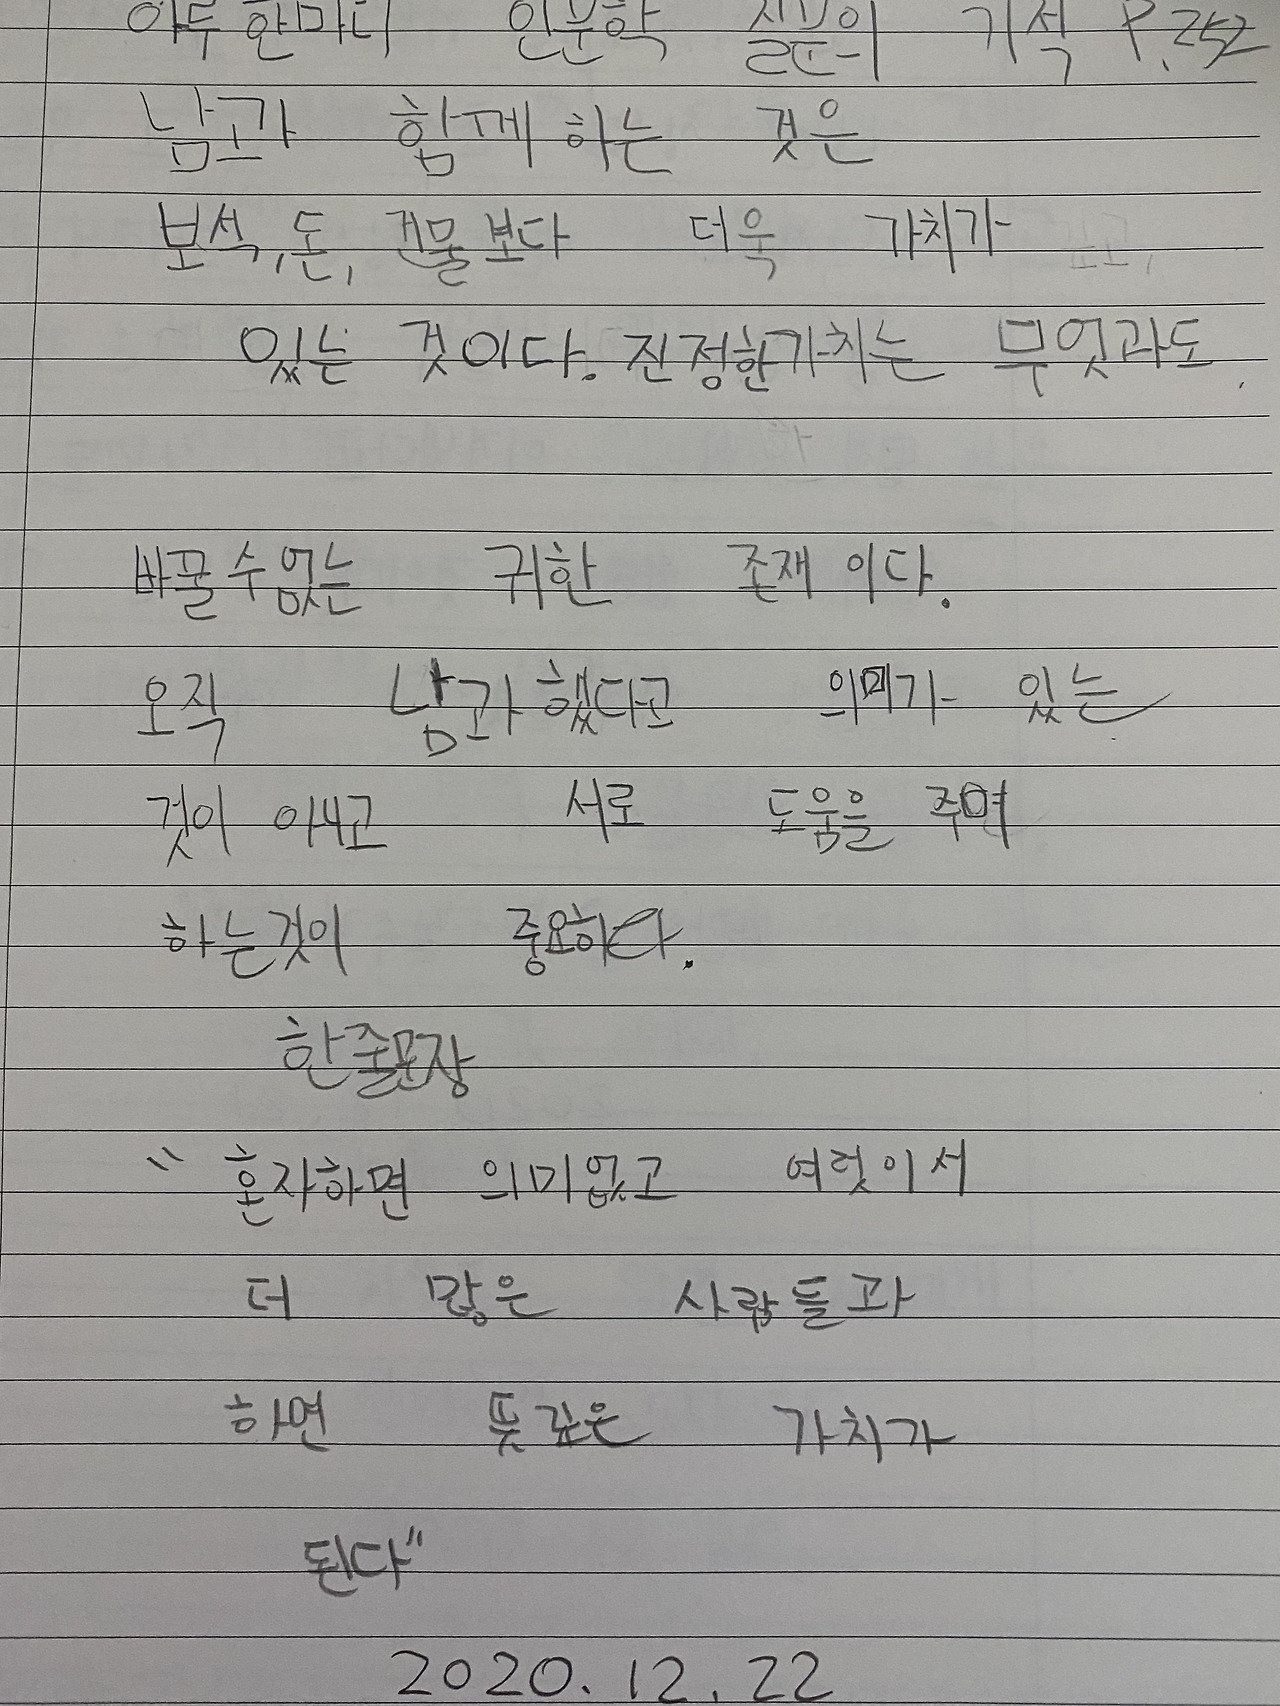 하루 한마디 인문학 질문의 기적 P.252
남과 함께 하는 것은
보석, 돈, 건물보다 더욱 가치가
있는 것이다. 진정한가치는 무엇과도
바꿀수없는 귀한 존재 이다.
오직 남과했다고 의미가 있는
것이 아니고 서로 도움을 주며
하는것이 중요하다.
한줄문장
"혼자하면 의미없고 여럿이서
더 많은 사람들과
하면 뜻깊은 가치가
된다"
2020.12.22